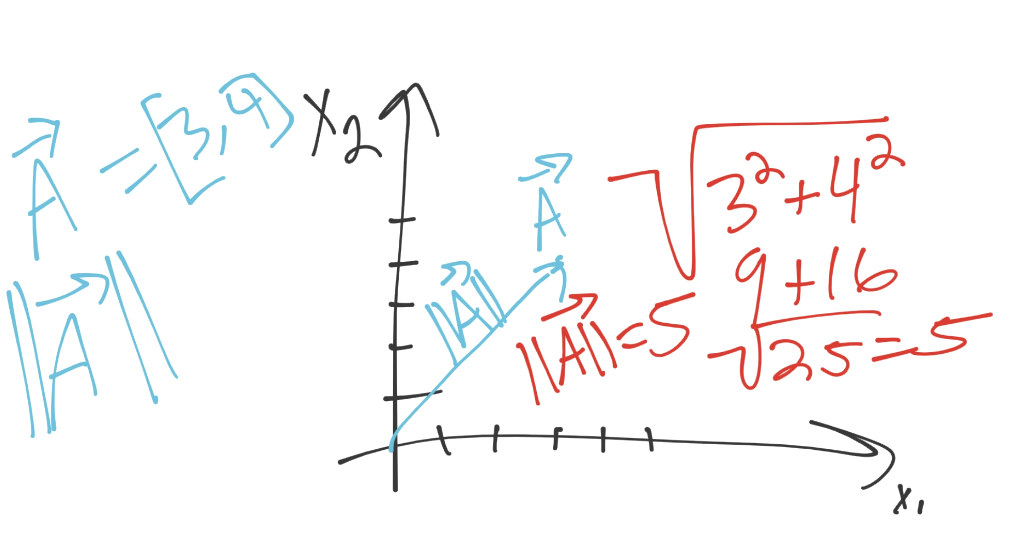 A⃗ = [3,4]
||A⃗||
X₂
A⃗
||A⃗||
√3² + 4²
9 + 16
√25 = 5
||A⃗|| = 5
X₁